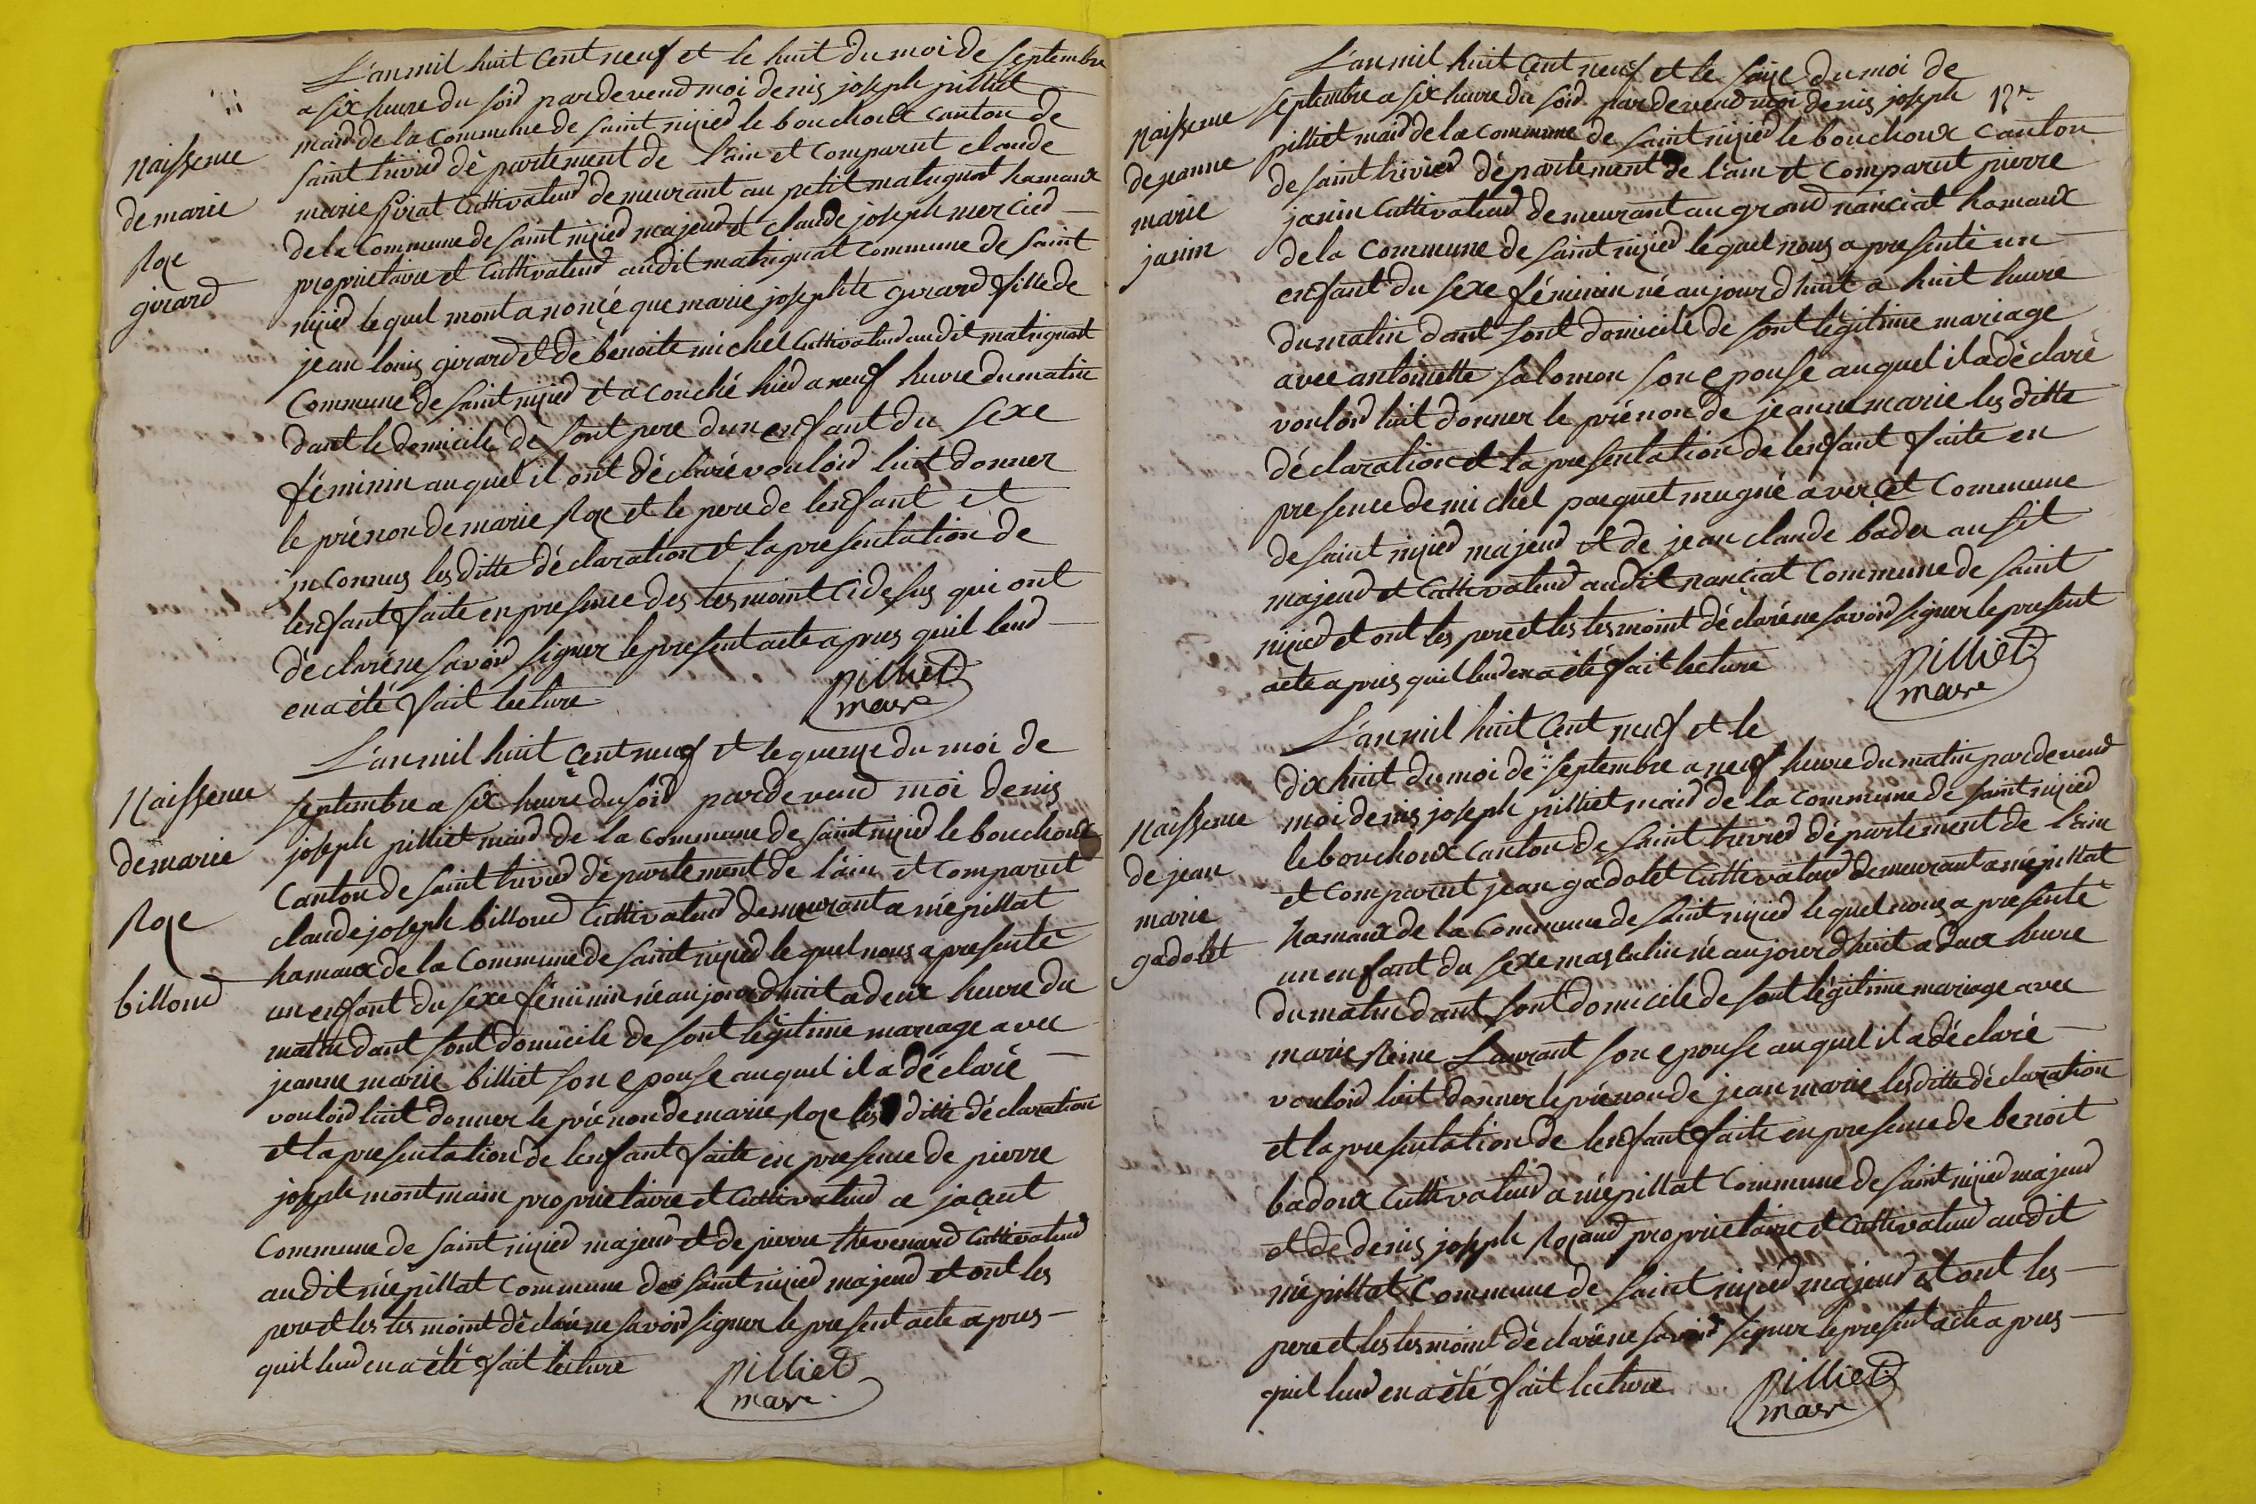 L'an mil huit Cent neuf et le huit du moi de septembre
a six heure du soir pardeveud moi denis joseph pilliet
maid de la Commune de saint nizied le bouchoux Canton de
saint trivied dèpartement de l'ain et Comparut claude
marie Cultivateud demeurant au petit hamaux
de la Commune de saint nizied majeud et claude joseph mercied
proprietaire et Cultivateud audit matignat Commune de saint
nizied lequel mont anoncé que marie josephte girard fille de
jean louis girard et de benoite michel Cultivateud audit matignat
Commune de saint nizied et acouché hied a neuf heure du matin
dant le domicile de sont pere dun enfant du sexe
féminin auquel il ont dèclaré vouloid luit donner
le prénon de marie Roze et le pere de lenfant et
inconnus les ditte dèclaration et la presentation de
lenfant faite en presence des tesmoint Cidesus qui ont
dèclaré ne savoid signer le present acte apres quil leud
en a été fait lecture
Pilliet
mare
naissence
de marie
Roze
girard
L'an mil huit Cent neuf et le quenze du moi de
septembre a six heure du soid pardeveud moi denis
joseph pilliet maid de la Commune de saint nizied le bouchoux
Canton de saint trivied dèpartement de l'ain et Comparut
claude joseph billoud Cultivateud demeurant a mépillat
hamaux de la Commune de saint nizied lequel nous a presenté
un enfant du sexe féminin né aujourdhuit a deux heure du
matin dant sont domicile de sont légitime mariage avec
jeanne marie billiet son epouse auquel il a dèclaré
vouloid luit donner le prénon de marie Roze les ditte dèclaration
et la presentation de lenfant faite en presence de pierre
joseph montmain proprietaire et Cultivateud a jaçeut
Commune de saint nizied majeud et de pierre thevenard Cultivateud
audit mépillat Commune de saint nizied majeud et ont les
pere et les tesmoint dèclaré ne savoid signer le present acte apres
quil leud en a été fait lecture
Pilliet
mare
Naissence
de marie
Roze
billoud
L'an mil huit Cent neuf et le saize du moi de
septembre a six heure du soid pardeveud moi denis joseph
pilliet maid de la Commune de saint nizied le bouchoux Canton
de saint trivied dèpartement de l'ain et Comparut pierre
janin Cultivateud demeurant au grand nanciat hamaux
de la Commune de saint nizied lequel nous a presenté un
enfant du sexe féminin né aujourdhuit a huit heure
du matin dant sont domicile de sont légitime mariage
avec antoinette salomon son epouse auquel il a dèclaré
vouloid luit donner le prénon de jeanne marie les ditte
dèclaration et la presentation de lenfant faite en
presence de michel paequet mugnié a et Commune
de saint nizied majeud et de jean claude bader ausit
majeud et Cultivateud audit nanciat Commune de saint
nizied et ont les pere et les tesmoint dèclaré ne savoid signer le present
acte apres quil leud en a été fait lecture
Pilliet
mare
naissence
de jeanne
marie
janin
L'an mil huit Cent neuf et le
dix huit du moi de septembre a neuf heure du matin pardeveud
moi denis joseph pilliet maid de la Commune de saint nizied
le bouchoux Canton de saint trivied dèpartement de l'ain
et Comparut jean gadolet Cultivateud demeurant a mépillat
hamaux de la Commune de saint nizied lequel nous a presenté
un enfant du sexe masculin né aujourdhuit a deux heure
du matin dant sont domicile de sont légitime mariage avec
marie Reine Laurant son epouse auquel il a dèclaré
vouloid luit donner le prénon de jean marie les ditte dèclaration
et la presentation de lenfant faite en presence de benoit
badoux Cultivateud a mépillat Commune de saint nizied majeud
et de denis joseph Rozand proprietaire et Cultivateud audit
mépillat Commune de saint nizied majeud et ont les
pere et les tesmoint dèclaré ne savoid signer le present acte apres
quil leud en a été fait lecture
Pilliet
mare
naissence
de jean
marie
gadolet